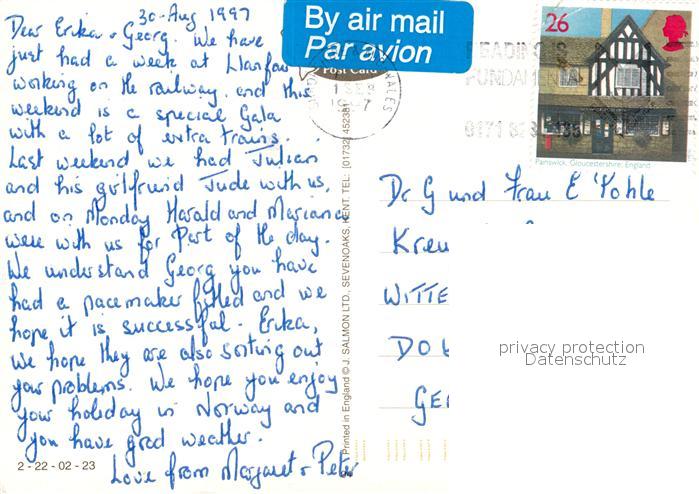 30-Aug 1997
Dear Erika & Georg. We have
just had a week at Llanfair
working on the railway, and this
weekend is a special Gala
with a lot of extra trains.
Last weekend we had Julian
and his girlfriend Jude with us,
and on Monday Harald and Mariana
were with us for part of the day.
We understand Georg you have
had a pacemaker fitted and we
hope it is successful. Erika,
we hope they are also sorting out
your problems. We hope you enjoy
your holiday in Norway and
you have good weather.
Love from Margaret & Peter
2 - 22 - 02 - 23
Printed in England © J. SALMON LTD., SEVENOAKS, KENT. TEL: (01732) 452381
By air mail
Par avion
Post Card
1 SEP
1997
WALES
READING IS
FUNDAMENTAL
0171 828
26
Painswick, Gloucestershire, England
Dr G und Frau E Kohle
Kreu
WITTE
DO
GE
privacy protection
Datenschutz